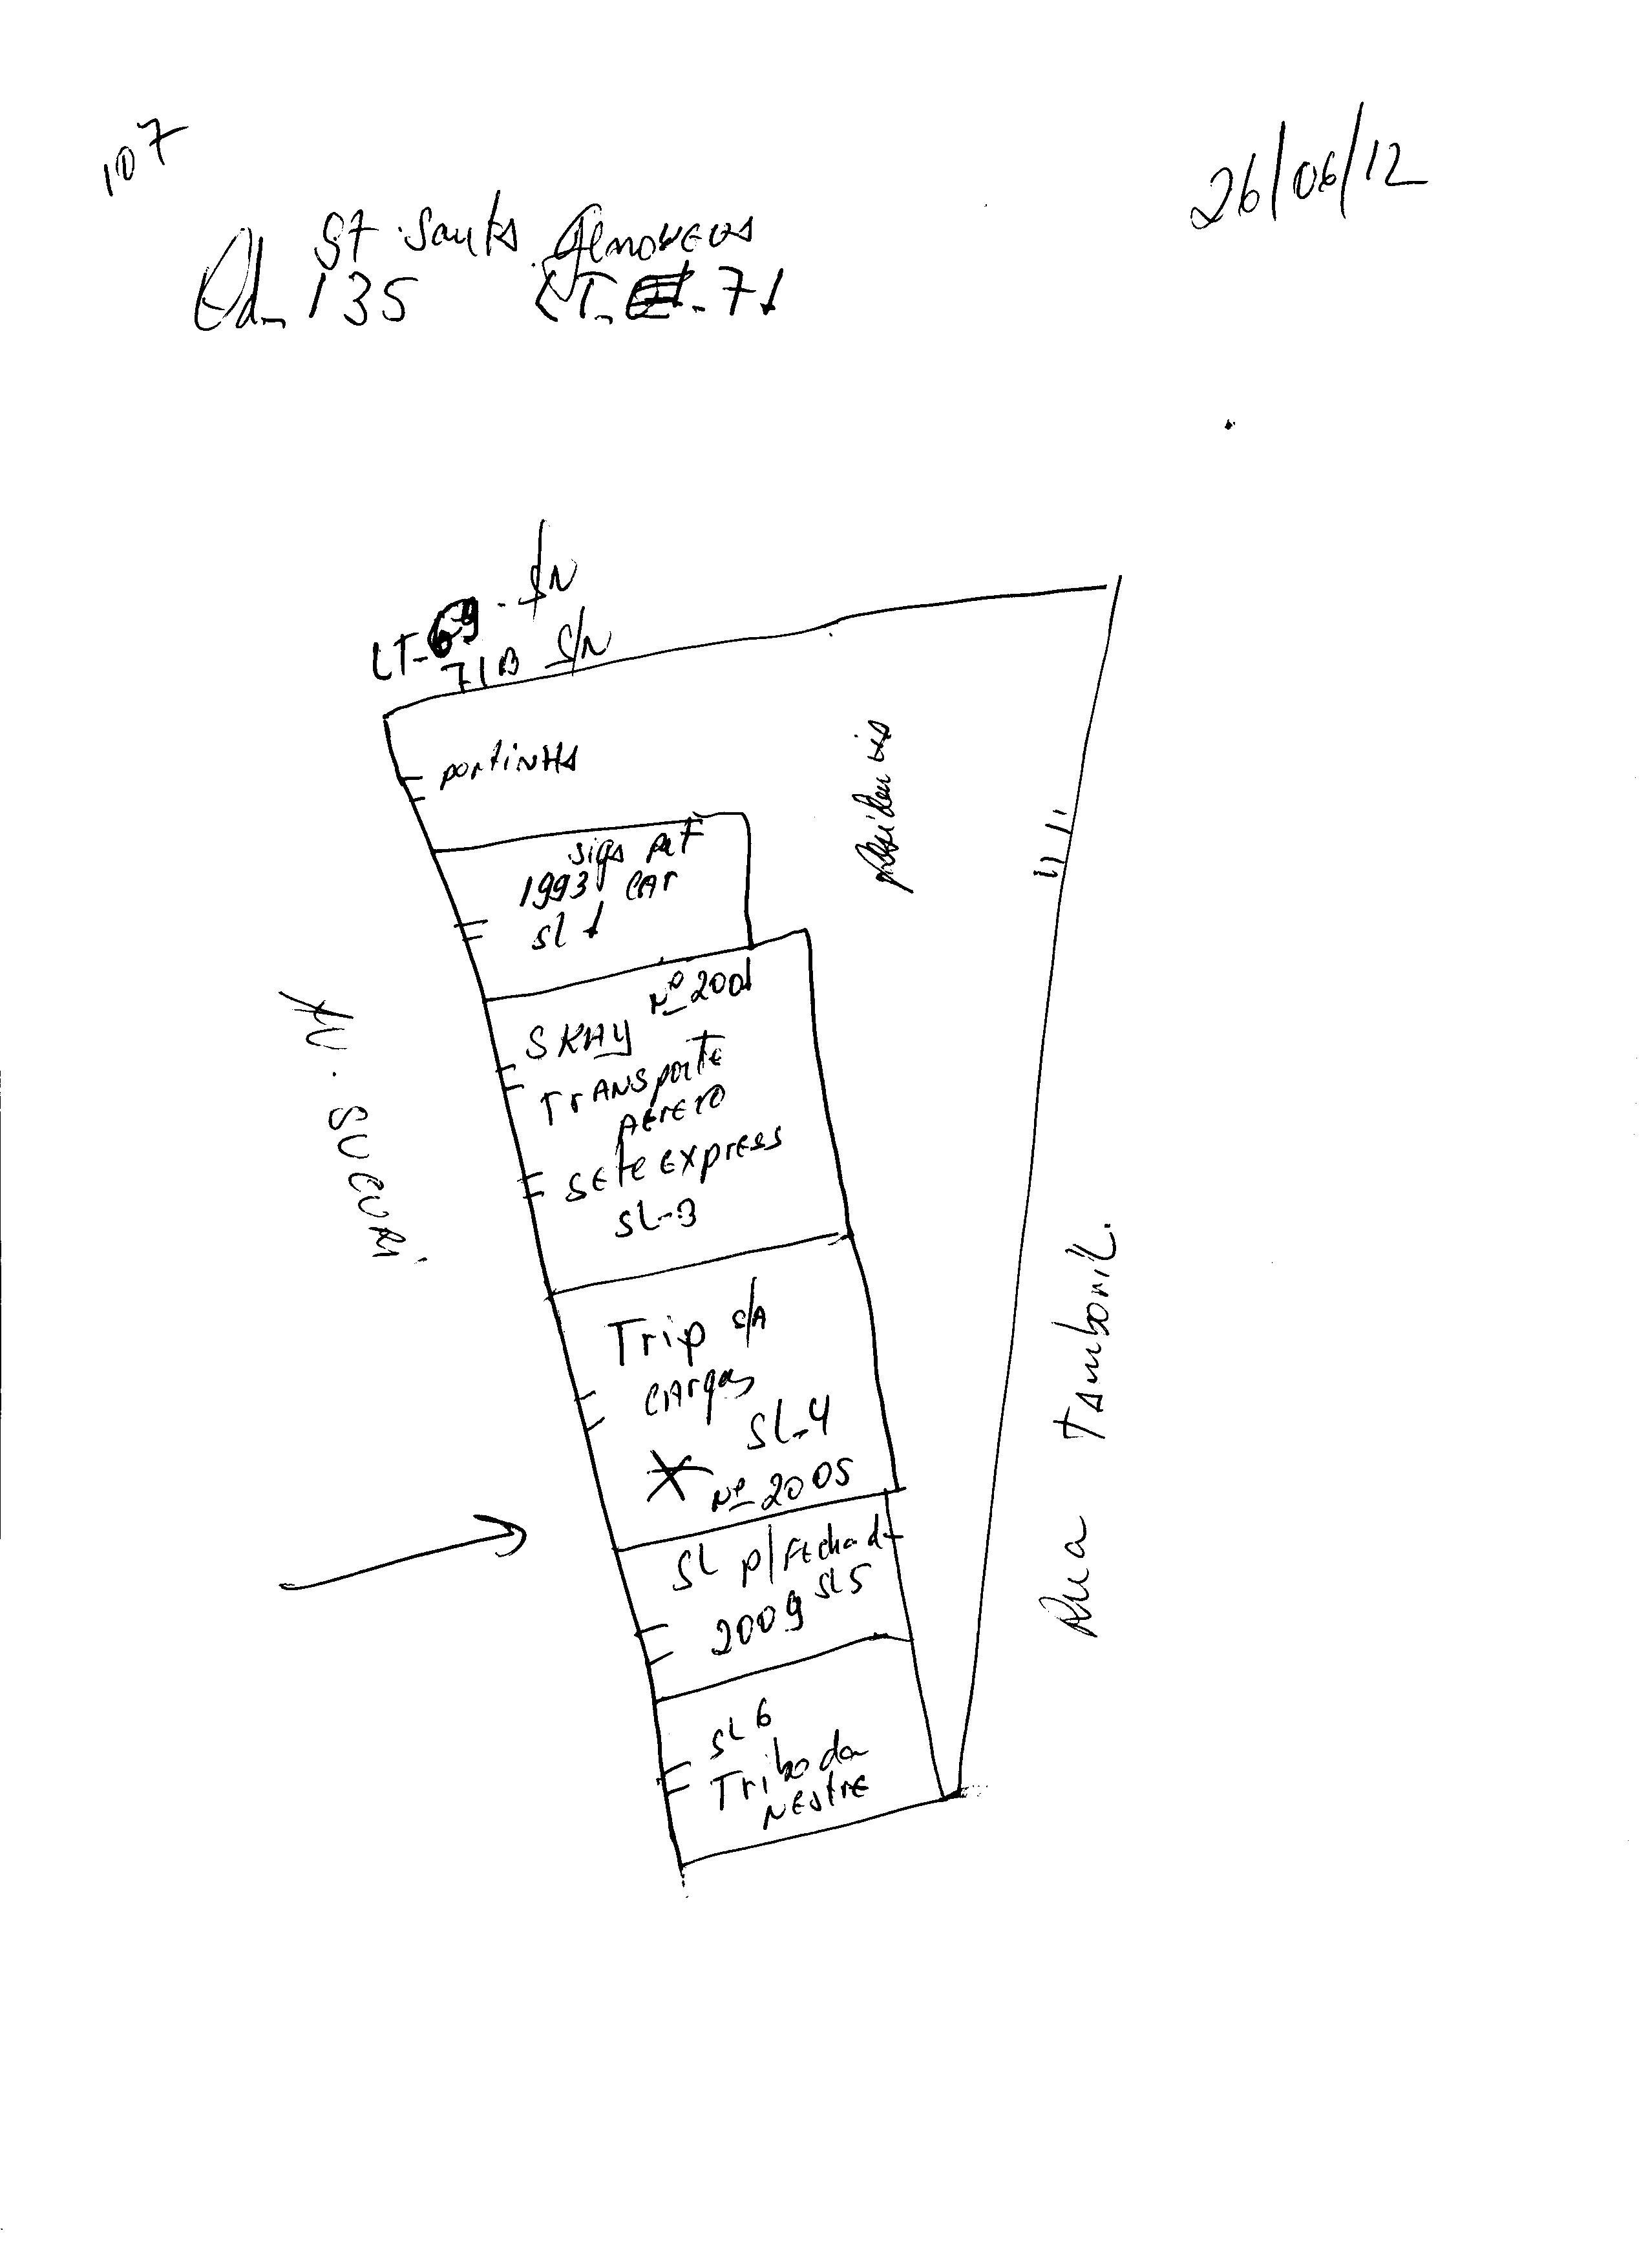 107
26/06/12
St. Santa Genoveva
Qd_ 135 LT- - 71
LT-69 - S/N
71B S/N
portinHA
1993 CAr
SL 1
Nº 2001
SKAY
TrANSporTE
AErEro
SETE EXPrESS
SL-3
Trip S/A
CArgas
SL-4
Nº 2005
SL p/ FEchad
2009 SL5
SL 6
Tribo da
NEStrE
Residencia
AV. SUCURI
Rua TAmboril.